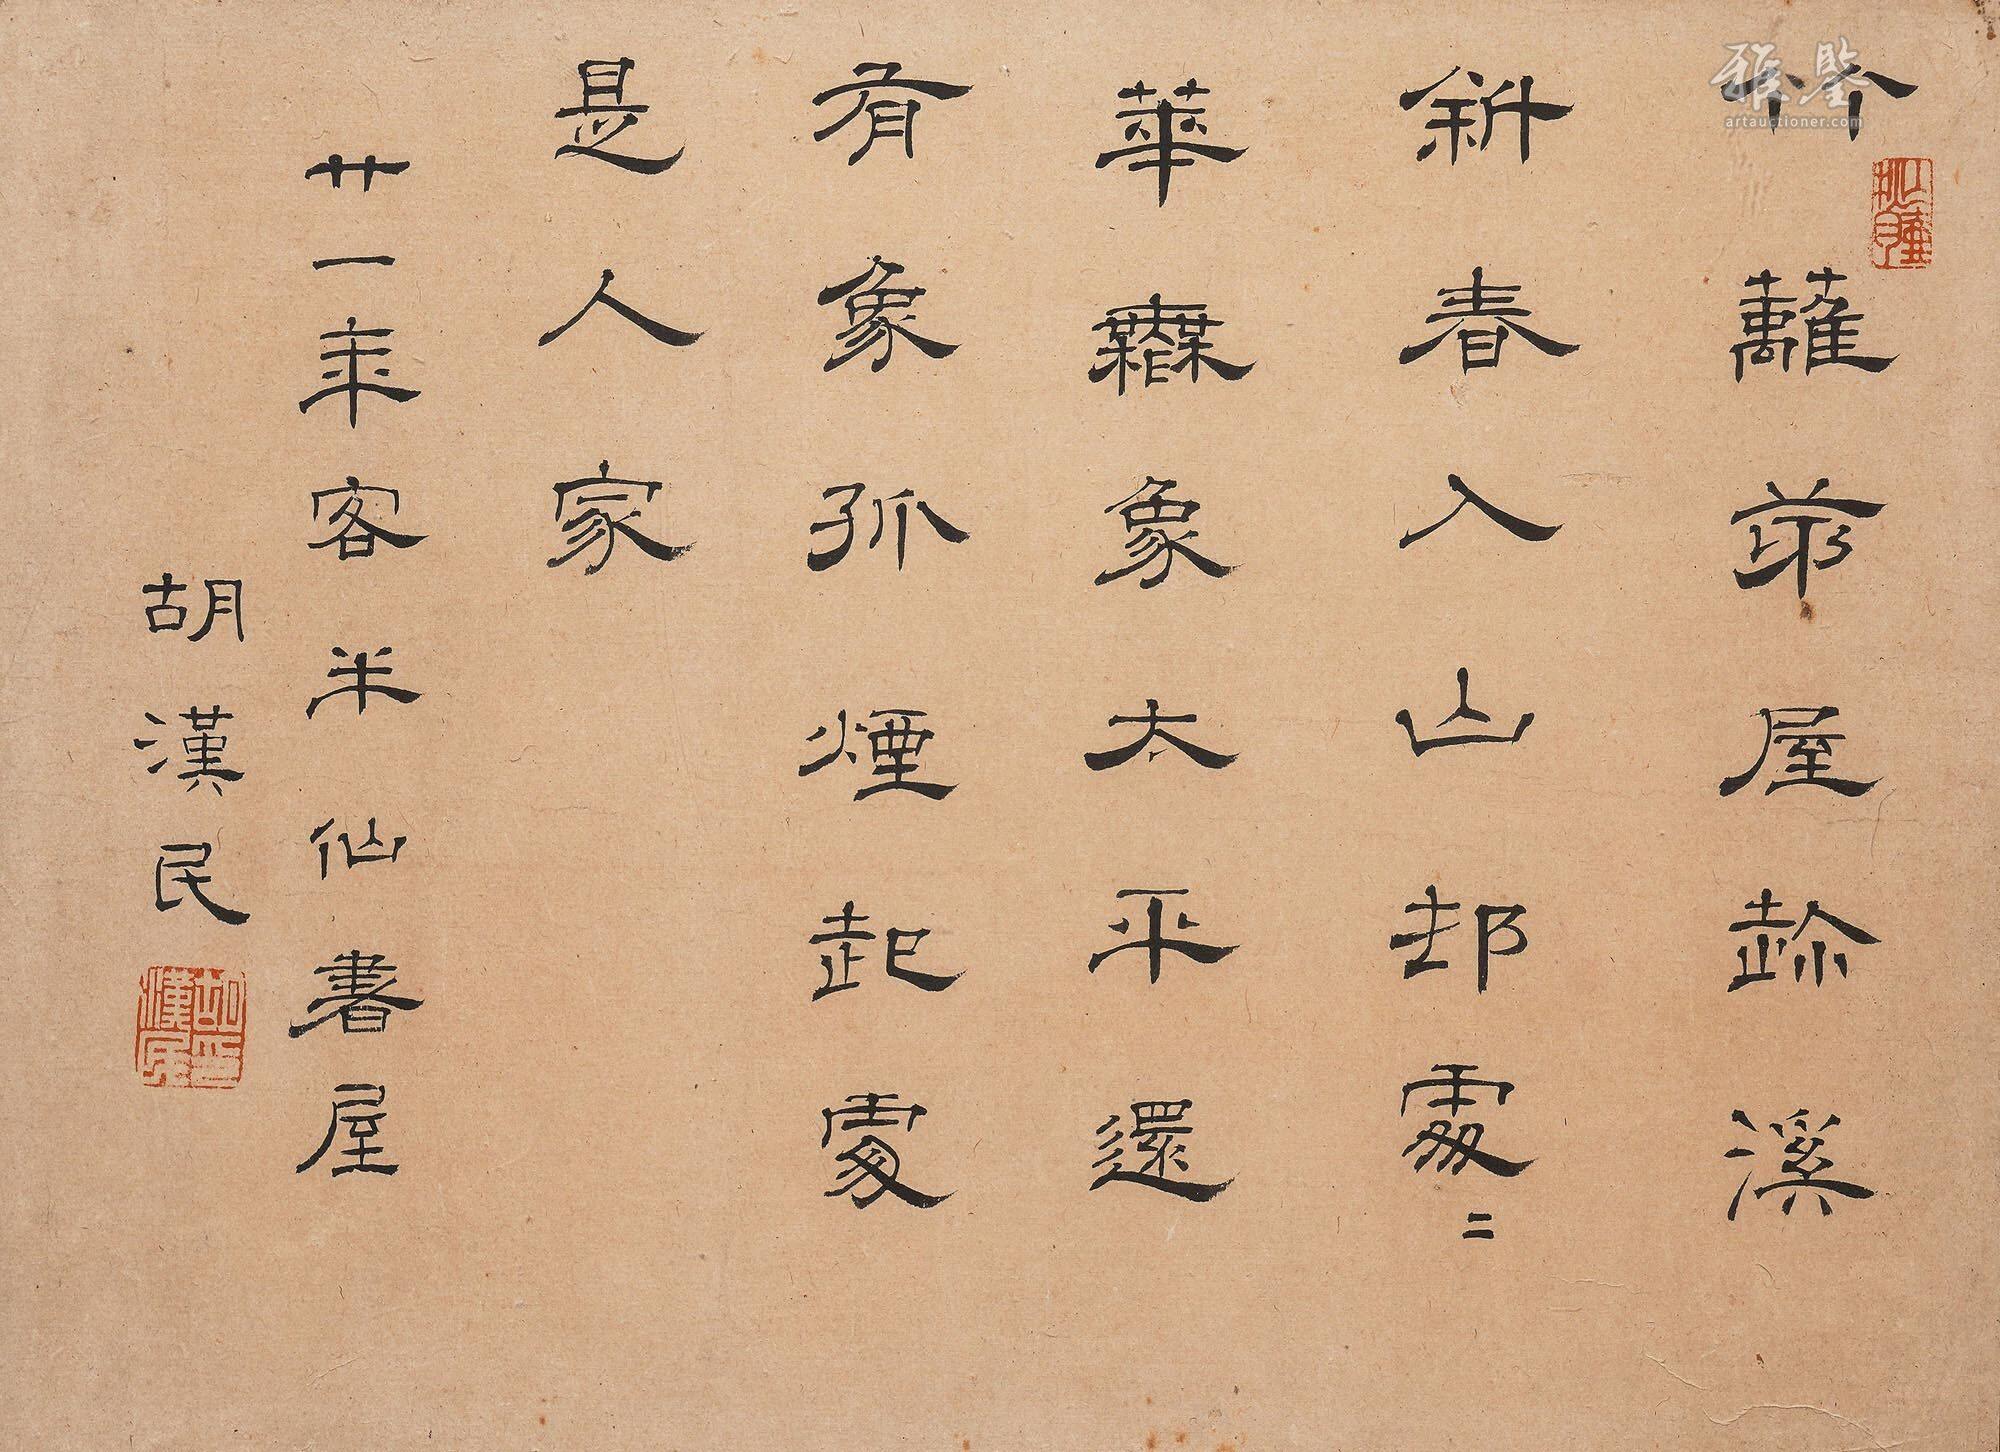 竹籬茅屋趂溪
斜春入山邨處〻
華無象太平還
有象孤煙起處
是人家
廿一年客半仙書屋
胡漢民
胡漢民印
雅鑒
artauctioner.com